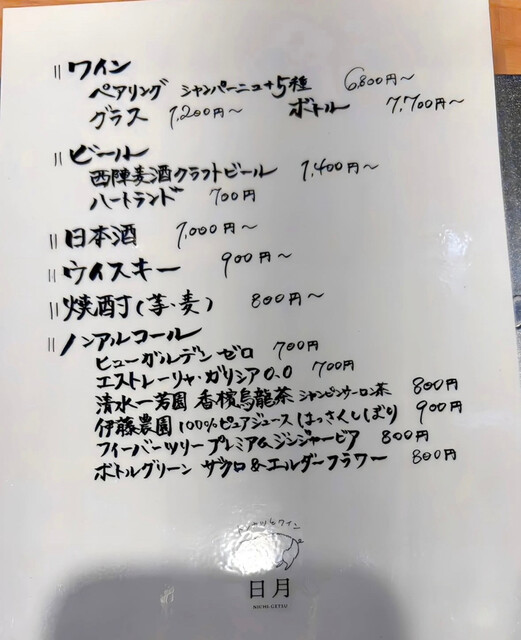 〃ワイン
ペアリング シャンパーニュ+5種 6,800円〜
グラス 1,200円〜 ボトル 7,700円〜
〃ビール
西陣麦酒クラフトビール 1,400円〜
ハートランド 700円
〃日本酒 1,000円〜
〃ウイスキー 900円〜
〃焼酎(芋・麦) 800円〜
〃ノンアルコール
ヒューガルデン ゼロ 700円
エストレーリャ・ガリシア 0.0 700円
清水一芳園 香檳烏龍茶 シャンピンウーロン茶 800円
伊藤農園 100%ピュアジュース はっさくしぼり 900円
フィーバーツリー プレミアムジンジャービア 800円
ボトルグリーン ザクロ&エルダーフラワー 800円
トンカツとワイン
日月
NICHI-GETSU